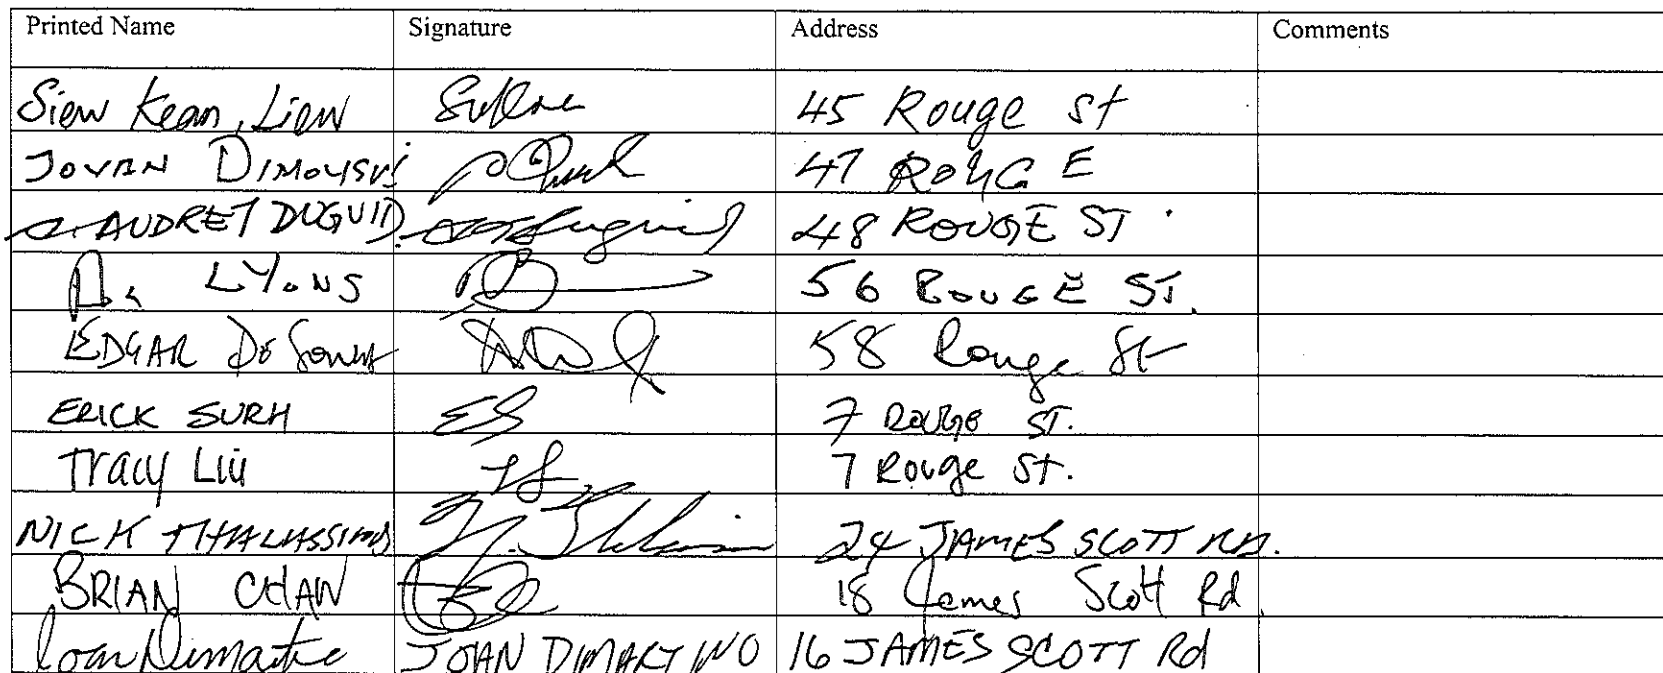 Printed Name Signature Address Comments
Siew Kean, Liew 45 Rouge St
JOVAN DIMOVSKI 47 ROUGE
AUDREY DUGUID 48 ROUGE ST.
LYONS 56 ROUGE ST.
EDGAR De Sousa 58 Rouge St
ERICK SURH ES 7 ROUGE ST.
Tracy Liu TL 7 Rouge St.
NICK THALASSINOS 24 JAMES SCOTT RD.
BRIAN CHAN 18 James Scott Rd
Joan Dimartino JOAN DIMARTINO 16 JAMES SCOTT Rd